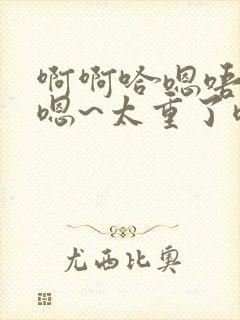 啊啊哈嗯唔
嗯~太重了
尤西比奥